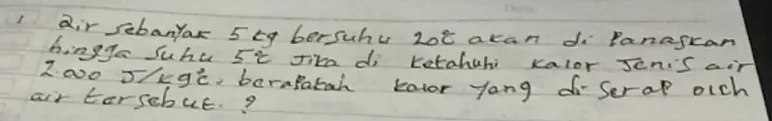 1 air sebanyak 5 kg bersuhu 20°c akan di Panaskan
hingga suhu 5°c Jika di ketahuhi kalor Jenis air
2.000 J/kg°c, berapakah kalor yang di serap oleh
air tersebut. ?